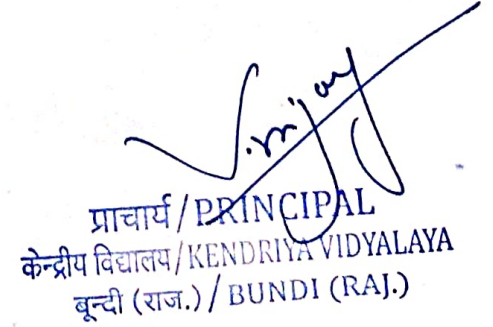 प्राचार्य / PRINCIPAL
केन्द्रीय विद्यालय / KENDRIYA VIDYALAYA
बून्दी (राज.) / BUNDI (RAJ.)